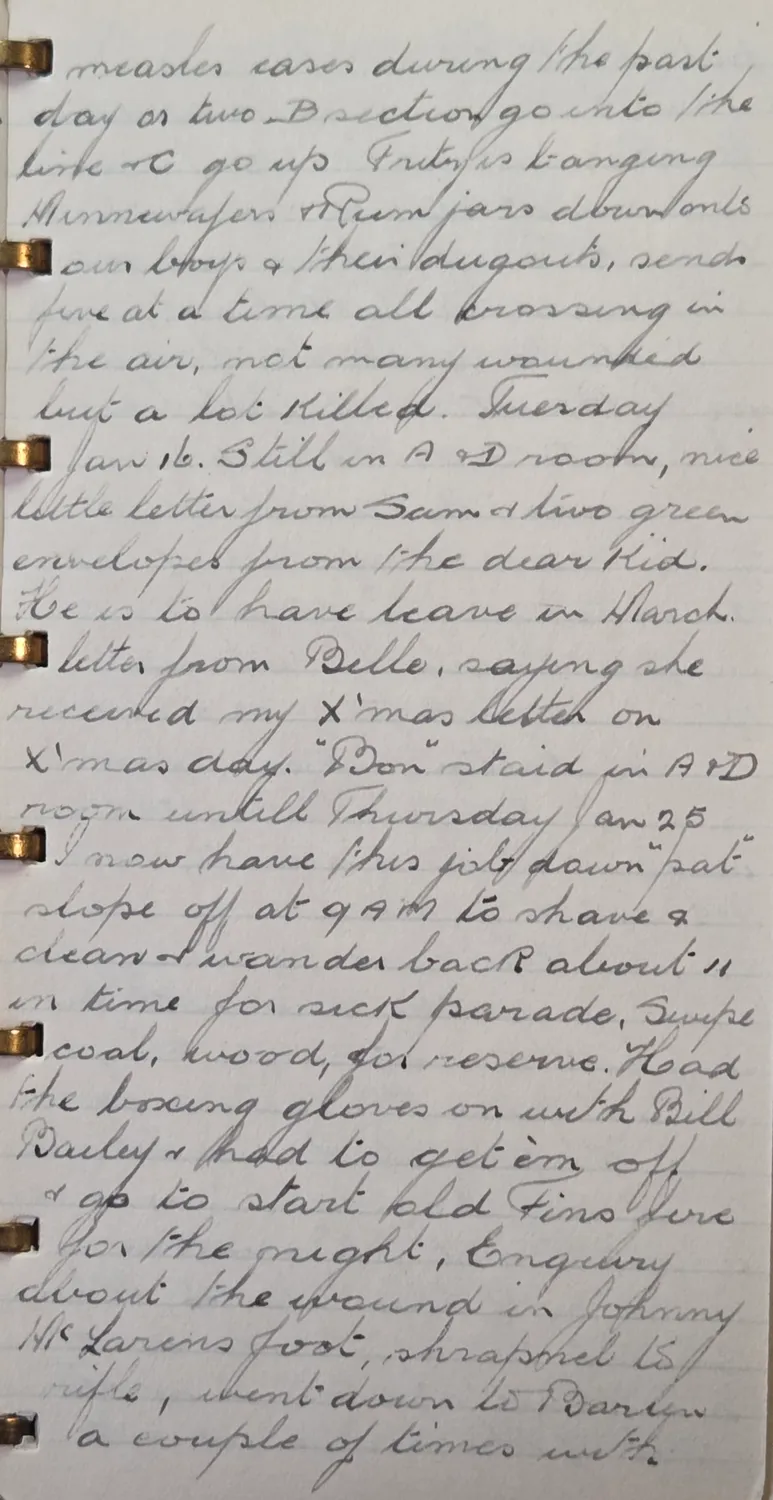 measles cases during the past
day or two. B section go into the
line + C go up Fritz is banging
Minnewafers + Rum jars down onto
our boys & their dugouts, sends
five at a time all crossing in
the air, not many wounded
but a lot killed. Tuesday
Jan 16. Still in A + D room, nice
little letter from Sam + two green
envelopes from the dear Kid.
He is to have leave in March.
letter from Belle, saying she
received my X'mas letter on
X'mas day. "Bon" staid in A + D
room untill Thursday Jan 25
I now have this job down "pat"
slope off at 9 AM to shave &
clean + wander back about 11
in time for sick parade. Swipe
coal, wood, for reserve. Had
the boxing gloves on with Bill
Bailey + had to get 'em off
+ go to start old Fins fire
for the night, Enquiry
about the wound in Johnny
McLarens foot, shrapnel to
rifle, went down to Barlin
a couple of times with